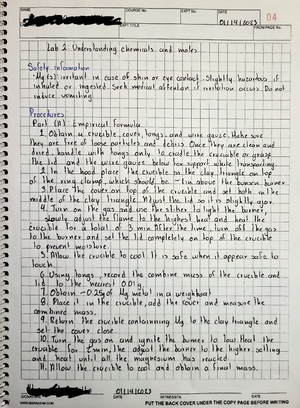 NAME
COURSE NO.
EXPT. NO.
DATE
01/19/2023
04
EXPT. TITLE
FROM PAGE NO.
Lab 2: Understanding chemicals and moles
Safety Information
Mg(s): irritant in case of skin or eye contact. Slightly hazardous if
inhaled or ingested. Seek medical attention if irritation occurs. Do not
induce vomiting.
Procedures
Part (A) Empirical Formula
1. Obtain a crucible, cover, tongs, and wire gauze. Make sure
they are free of loose particles and debris. Once they are clean and
dried, handle with tongs only to cradle the crucible or grasp
the lid and the wire gauze below for support while transporting
2. In the hood place the crucible in the clay triangle on top
of the ring clamp, which should be ~1in above the bunsen burner
3. Place the cover on top of the crucible and set both in the
middle of the clay triangle. Adjust the lid so it is slightly ajar
4. Turn on the gas and use the striker to light the burner,
slowly adjust the flame to the highest heat and heat the
crucible for a total of 3 min. After the time, turn off the gas
to the burner and set the lid completely on top of the crucible
to prevent moisture.
5. Allow the crucible to cool. It is safe when it appear safe to
touch.
6. Using tongs, record the combine mass of the crucible and
lid to the nearest 0.01g
7. Obtain ~0.25g of Mg metal in a weighboat
8. Place it in the crucible, add the cover and measure the
combined mass.
9. Return the crucible containing Mg to the clay triangle, and
set the cover close
10. Turn the gas on and ignite the burner to low. Heat the
crucible for 2 min, the adjust the burner to the higher setting
and heat until all the magnesium has reacted
11. Allow the crucible to cool and obtain a final mass.
SIGNATURE
DATE
01/19/2023
WITNESS/TA
DATE
PUT THE BACK COVER UNDER THE COPY PAGE BEFORE WRITING